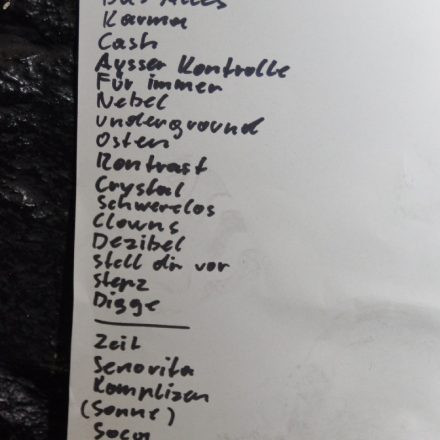 Karma
Cash
Aysser Kontrolle
Für immer
Nebel
underground
Osten
Kontrast
Crystal
Schwerelos
Clowns
Dezibel
Stell dir vor
Stenz
Digge
Zeit
Senorita
Komplizen
(Sonne)